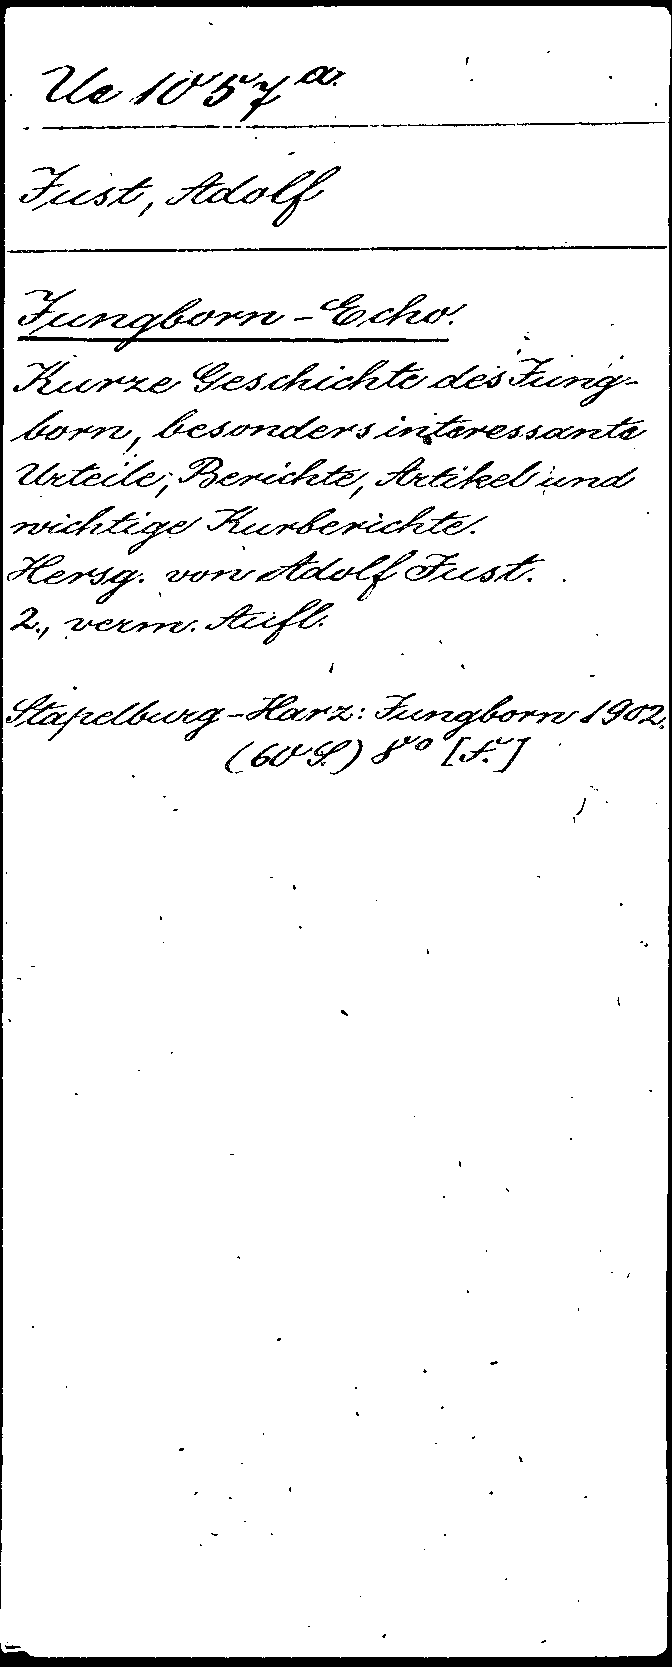 Uc 1057ᵃ·
Just, Adolf
Jungborn-Echo.
Kurze Geschichte des Jung-
born, besonders interessante
Urteile, Berichte, Artikel und
wichtige Kurberichte.
Hersg. von Adolf Just.
2., verm. Aufl.
Stapelburg-Harz: Jungborn 1902.
(60 S.) 8° [F.]